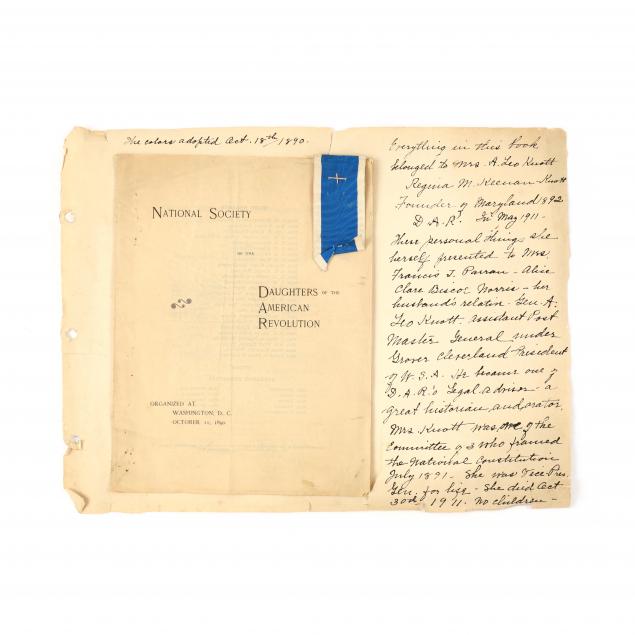 The colors adopted Oct. 18th 1890.
NATIONAL SOCIETY
OF THE
DAUGHTERS OF THE
AMERICAN
REVOLUTION
ORGANIZED AT
WASHINGTON, D. C.
OCTOBER 11, 1890
Everything in this book
belonged to Mrs. A. Leo Knott
Regina M. Keenan-Knott
Founder of Maryland 1892
D.A.R. In May 1911-
These personal things she
herself presented to Mrs.
Francis T. Parran - Alice
Clare Biscoe Norris - her
husband's relation - Gen. A.
Leo Knott - assistant Post
Master General under
Grover Cleverland President
of U.S.A. He became one of
D.A.R.'s Legal advisor - a
great historian, and orator.
Mrs. Knott was, one of the
Committee of 3 who framed
the National Constitution
July 1891 - She was Vice Pres.
Gen. for life - She died Oct
30th 1911. No children -